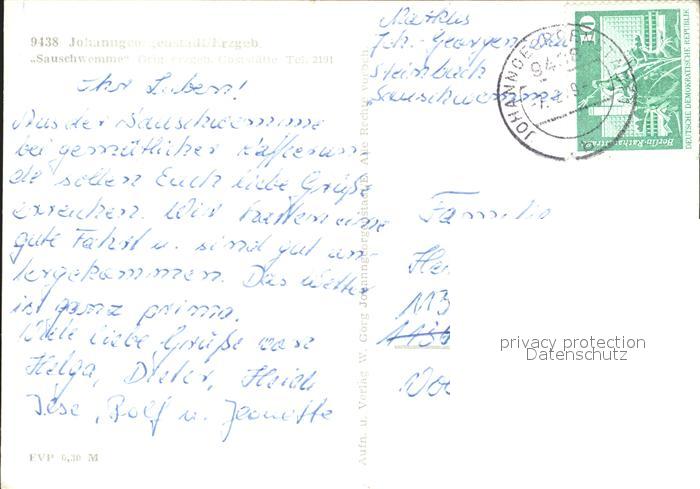 9438 Johanngeorgenstadt/Erzgeb.
„Sauschwemme" Orig. erzgeb. Gaststätte Tel. 2191
Ihr Lieben!
Aus der Sauschwemme
bei gemütlicher Kafferun
de sollen Euch liebe Grüße
erreichen. Wir hatten eine
gute Fahrt u. sind gut an-
gekommen. Das Wetter
ist ganz prima.
Viele liebe Grüße von
Helga, Dieter, Heidi
Rolf u. Jeanette
EVP 0,30 M
Aufn. u. Verlag W. Görg Johanngeorgenstadt/E. Alle Rechte vorbeh.
Joh.-Georgen
Steinbach
Sauschwemme
JOHANNGEORGENSTADT
10
DEUTSCHE DEMOKRATISCHE REPUBLIK
Berlin-Rathausstraße
Familie
Hei
113
privacy protection
Datenschutz